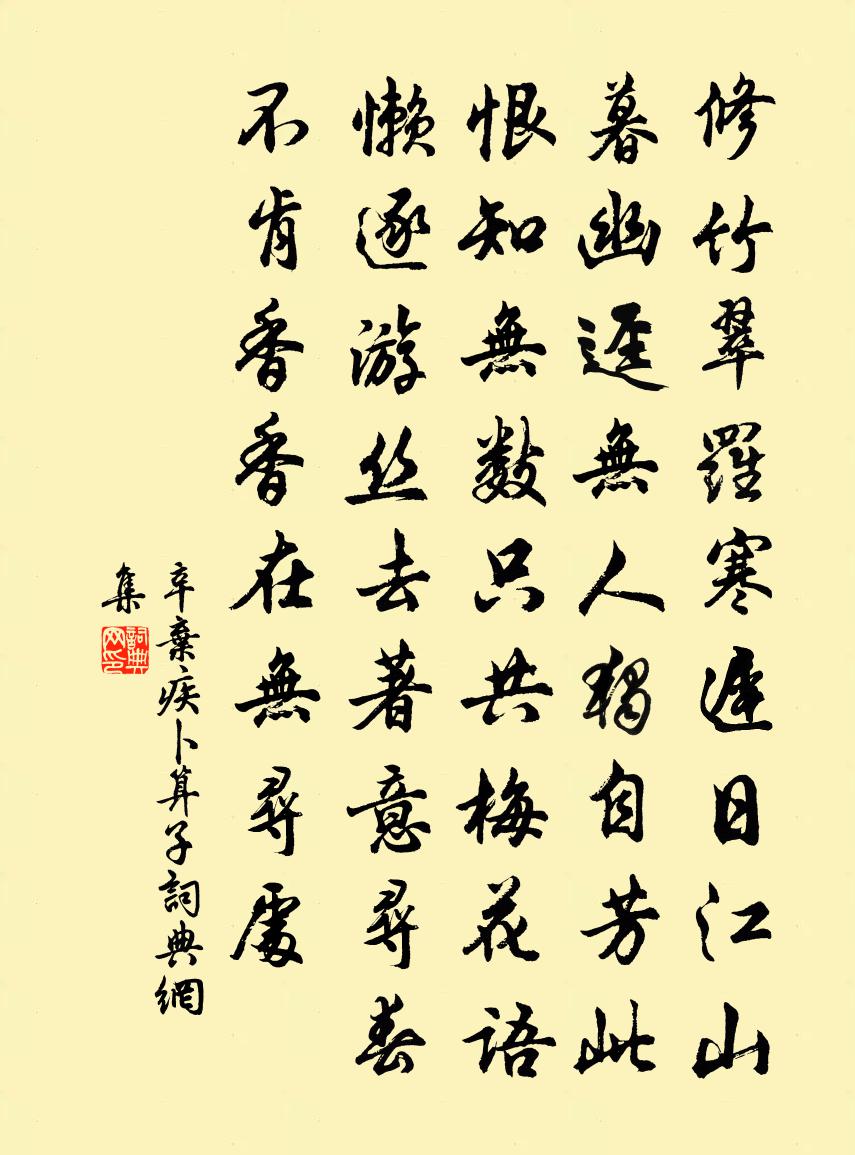 修竹翠羅寒遲日江山
暮幽逕無人獨自芳此
恨知無數只共梅花語
懶逐游丝去著意尋春
不肯香香在無尋處
辛棄疾卜算子詞典網
集
詞典网印